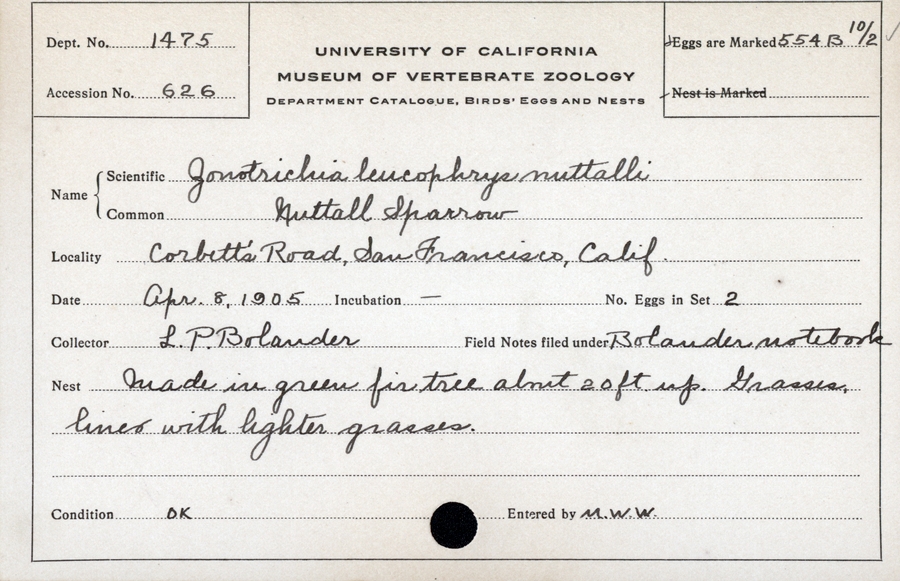 Dept. No. 1475
Accession No. 626
UNIVERSITY OF CALIFORNIA
MUSEUM OF VERTEBRATE ZOOLOGY
DEPARTMENT CATALOGUE, BIRDS' EGGS AND NESTS
Eggs are Marked 554B 10/2
Nest is Marked
Name
Scientific Zonotrichia leucophrys nuttalli
Common Nuttall Sparrow
Locality Corbett's Road, San Francisco, Calif.
Date Apr. 8, 1905 Incubation — No. Eggs in Set 2
Collector L. P. Bolander Field Notes filed under Bolander notebook
Nest Made in green fir tree about 20 ft up. Grasses,
lined with lighter grasses.
Condition OK Entered by M.W.W.